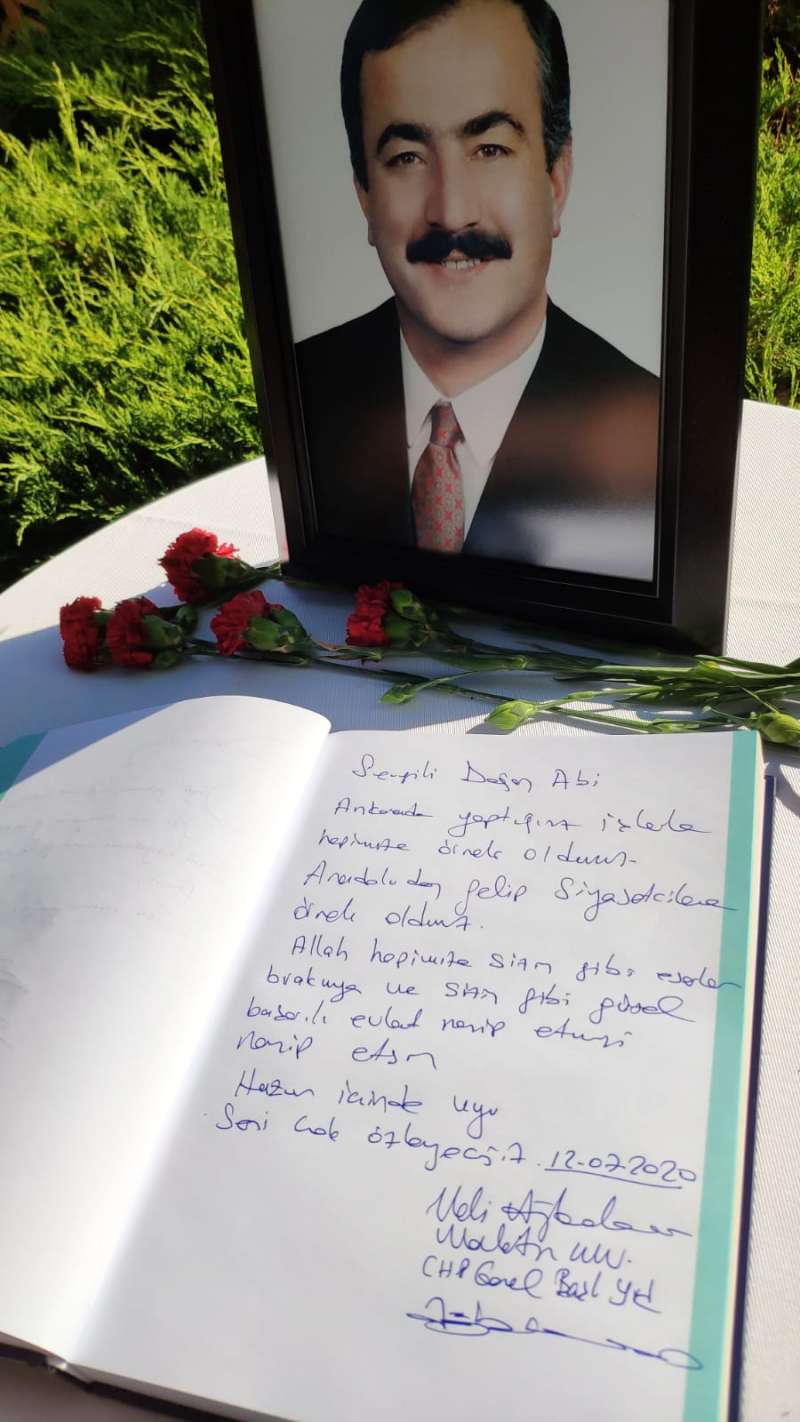 Sevgili Doğan Abi
Ankarada yaptığınız işlerle
hepimize örnek oldunuz.
Anadoludan gelip Siyasetcilere
örnek oldunuz.
Allah hepimize sizin gibi eserler
bırakmaya ve sizin gibi güzel
başarılı evlat nasip etmesi
nasip etsin
Huzur içinde uyu
Seni çok özleyeceğiz. 12.07.2020
Veli Ağbaba
Malatya MV.
CHP Genel Başk Yrd